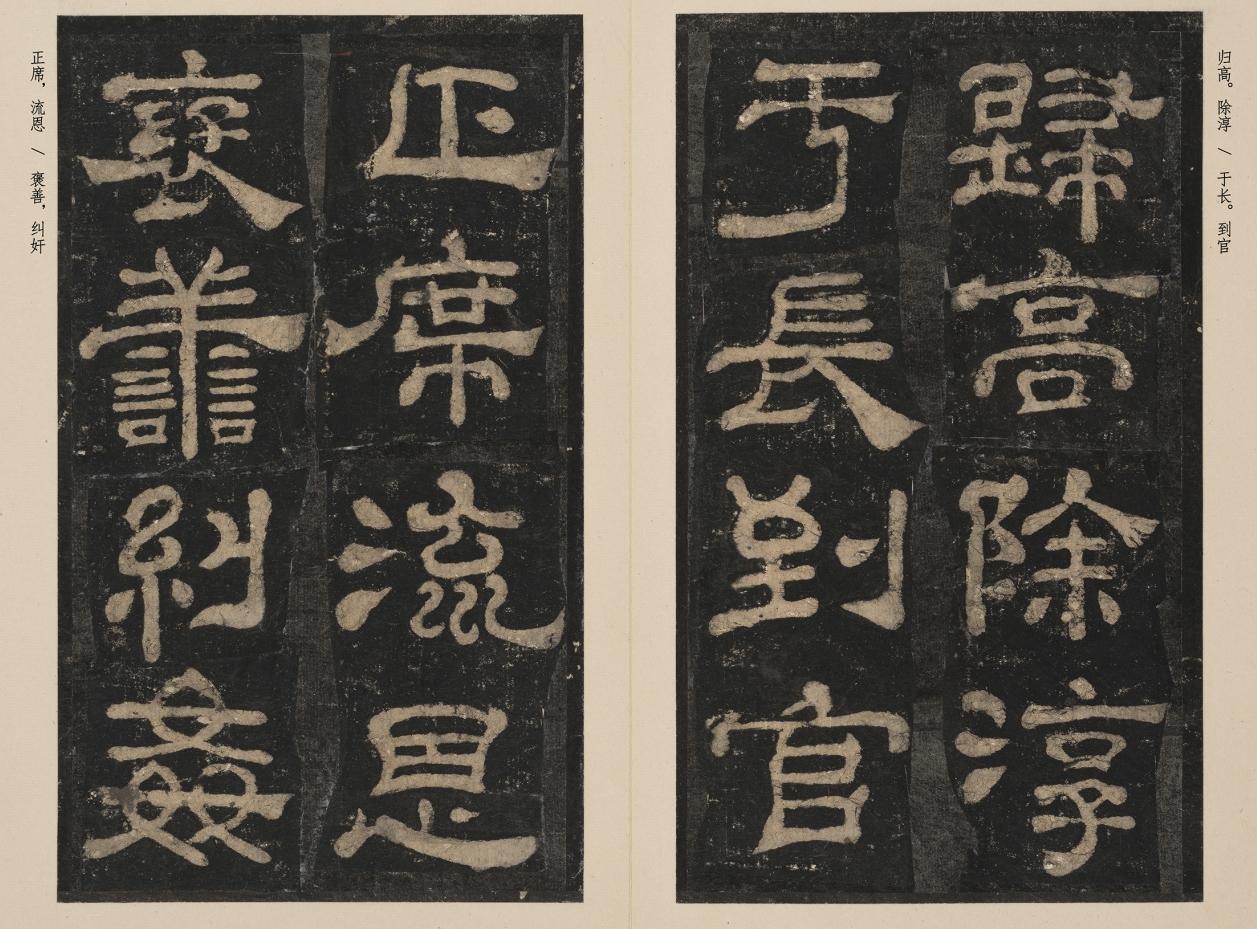 归高。除淳 / 于长。到官
歸高除淳
于長到官
正席流恩
襃譱糾姦
正席，流恩 / 褒善，纠奸